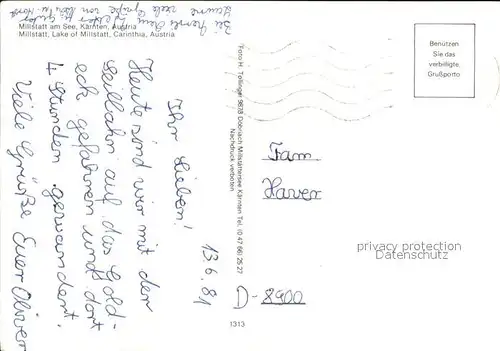 Millstatt am See, Kärnten, Austria
Millstatt, Lake of Millstatt, Carinthia, Austria
Bei herrlichem Wetter u. guter
Laune viele Grüße von
13.6.81
Ihr Lieben!
Heute sind wir mit der
Seilbahn auf das Gold-
eck gefahren und dort
4 Stunden gewandert.
Viele Grüße Euer Oliver
Foto H. Tollinger 9873 Döbriach Millstättersee Kärnten Tel. (0 47 66) 26 27
Nachdruck verboten
Benützen
Sie das
verbilligte
Grußporto
Fam.
Haver
privacy protection
Datenschutz
D-8900
1313